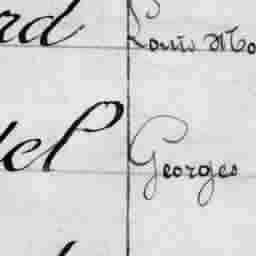 rd Louis Ma
el Georges